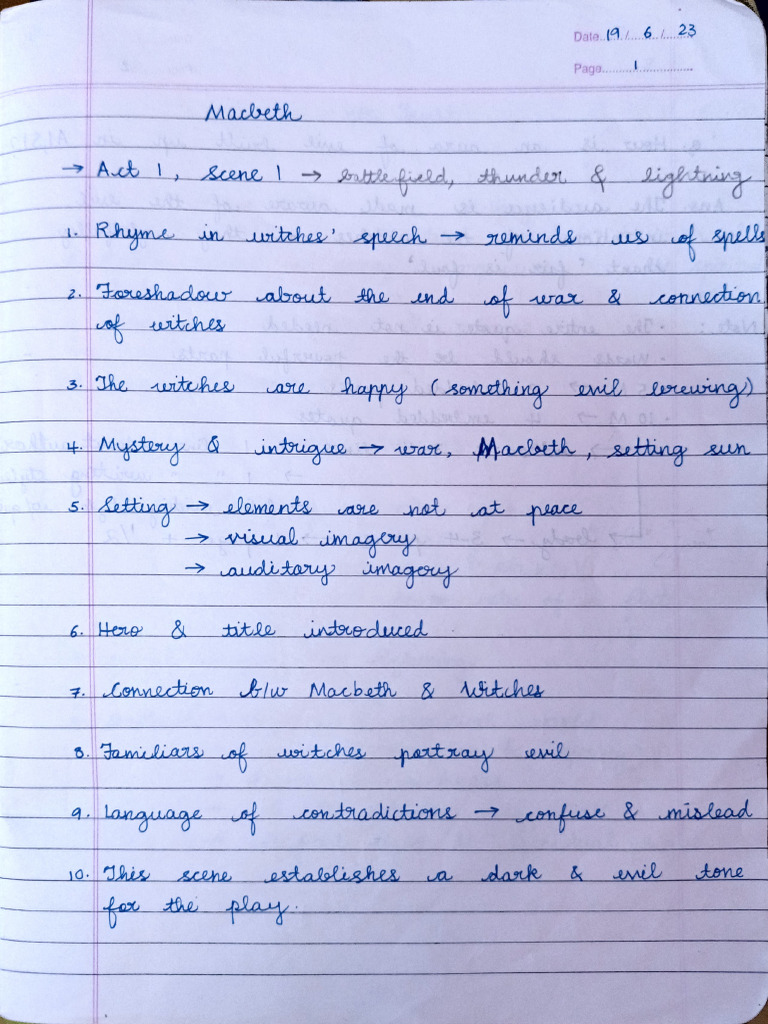 Date 19 / 6 / 23
Page 1
Macbeth
→ Act 1, Scene 1 → battlefield, thunder & lightning
1. Rhyme in witches' speech → reminds us of spells
2. Foreshadow about the end of war & connection
of witches
3. The witches are happy (something evil brewing)
4. Mystery & intrigue → war, Macbeth, setting sun
5. Setting → elements are not at peace
→ visual imagery
→ auditory imagery
6. Hero & title introduced
7. Connection b/w Macbeth & Witches
8. Familiars of witches portray evil
9. Language of contradictions → confuse & mislead
10. This scene establishes a dark & evil tone
for the play.